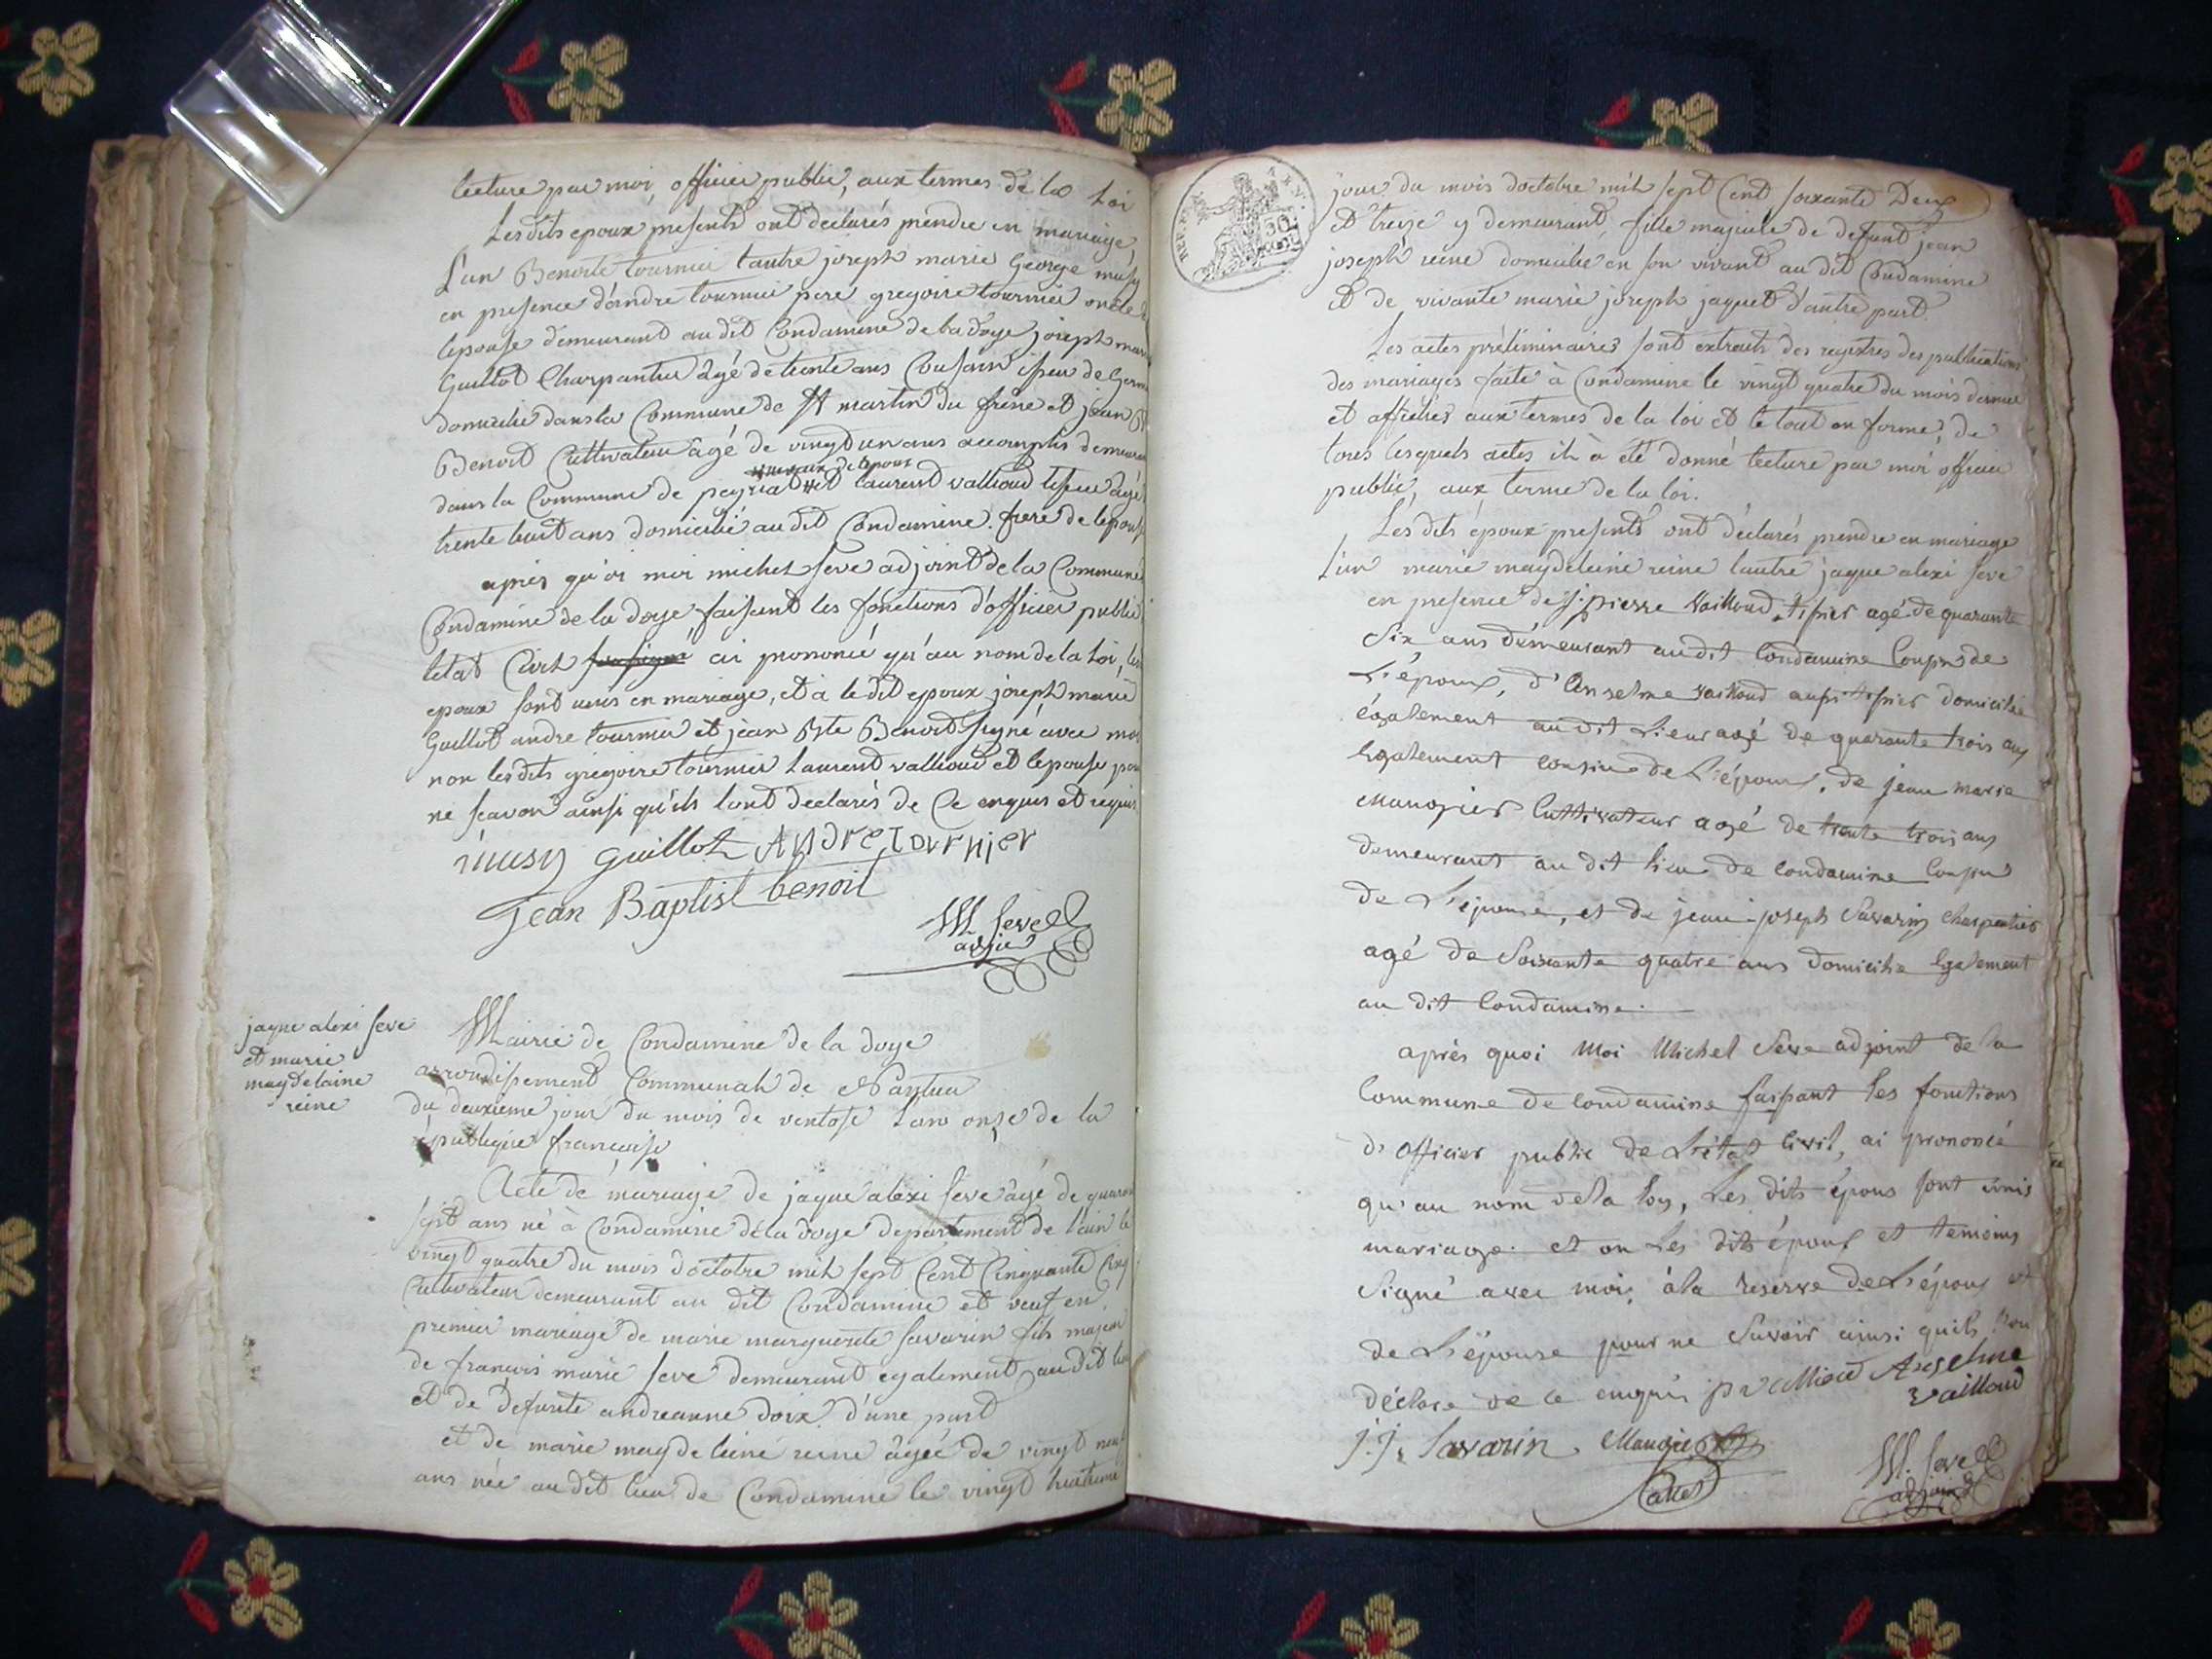 lecture par moi, officier public, aux termes de la Loi
Les dits epoux presents ont declarés prendre en mariage
L'un Benoite tournier l'autre joseph marie George musy
en presence d'andre tournier pere gregoire tournier oncle de
lepouse demeurant au dit Condamine de la doye joseph marie
Guillot Charpantier âgé de trente ans Cousain issu de Germ
domicilié dans la Commune de St martin du frêne et jean Bte
Benoit Cultivateur âgé de vingt un ans accomplis demeurant
de lepoux
dans la Commune de peyriat et laurent vallioud tissieu âgé
trente huit ans domicilié au dit Condamine. frere de lepouse
après qu'oi moi michel seve adjoint de la Commune
Condamine de la doye, faisant les fonctions d'officier public
letat Civil ai prononcé qu'au nom de la Loi, les
epoux sont unis en mariage, et a le dit epoux joseph marie
Guillot andre tournier et jean Bte Benoit signé avec moi
non les dits gregoire tournier Laurent vallioud et lepouse pour
ne scavoir ainsi qu'ils l'ont declarés de Ce enquis et requis
musy guillot ANDRE TOURNIER
Jean Baptist benoit
M Seve
adjoin
jaque alexi seve
et marie
magdelaine
reine
Mairie de Condamine de la doye
arrondissement Communal de Nantua
du deuxieme jour du mois de ventose Lan onze de la
republique francaise
Acte de mariage de jaque alexi seve âgé de quarante
sept ans né à Condamine de la doye departement de l'ain le
vingt quatre du mois doctobre mil sept Cent Cinquante Cinq
Cultivateur demeurant au dit Condamine et veuf en
premier mariage de marie marguerite savarin fils majeur
de francois marie seve demeurant egalement au dit lieu
et de defunte andreanne doix d'une part
et de marie magdeleine reine âgée de vingt neuf
ans née au dit lieu de Condamine le vingt huitieme
jour du mois doctobre mil sept Cent soixante Deux
et treize y demeurant, fille majeure de defunt jean
joseph reine domicilié en son vivant au dit Condamine
et de vivante marie joseph jaquet d'autre part.
Les actes préliminaires sont extraits des registres des publications
des mariages faite à Condamine le vingt quatre du mois dernier
et affichés aux termes de la loi et le tout en forme, de
tous lesquels actes il à été donné lecture par moi officier
public, aux terme de la loi.
Les dits époux presents ont déclarés prendre en mariage
l'un marie magdeleine reine lautre jaque alexi seve
en presence de pierre Vailloud tissier agé de quarante
Six ans démeurant audit Condamine Cousin de
L'époux, d'Anselme Vailloud aussi tissier domicilié
également au dit Lieu agé de quarante trois ans
Egalement cousin de L'époux, de jean marie
Maugier Cultivateur agé de trente trois ans
demeurant au dit lieu de Condamine Cousin
de L'épouse, et de jean joseph Savarin Charpentier
agé de Soixante quatre ans domicilié Egalement
au dit Condamine.
après quoi Moi Michel Seve adjoint de la
Commune de Condamine faisant les fonctions
d'Officier public de L'état Civil, ai prononcé
qu'au nom de la Loy, Les dits époux sont unis
mariage. et on Les dits époux et temoins
Signé avec moi, à la reserve de L'époux et
de L'épouse pour ne Savoir ainsi quils l'on
déclare de ce enquis Anselme
vailloud
J.J. Savarin Maugier
M. Seve
adjoint